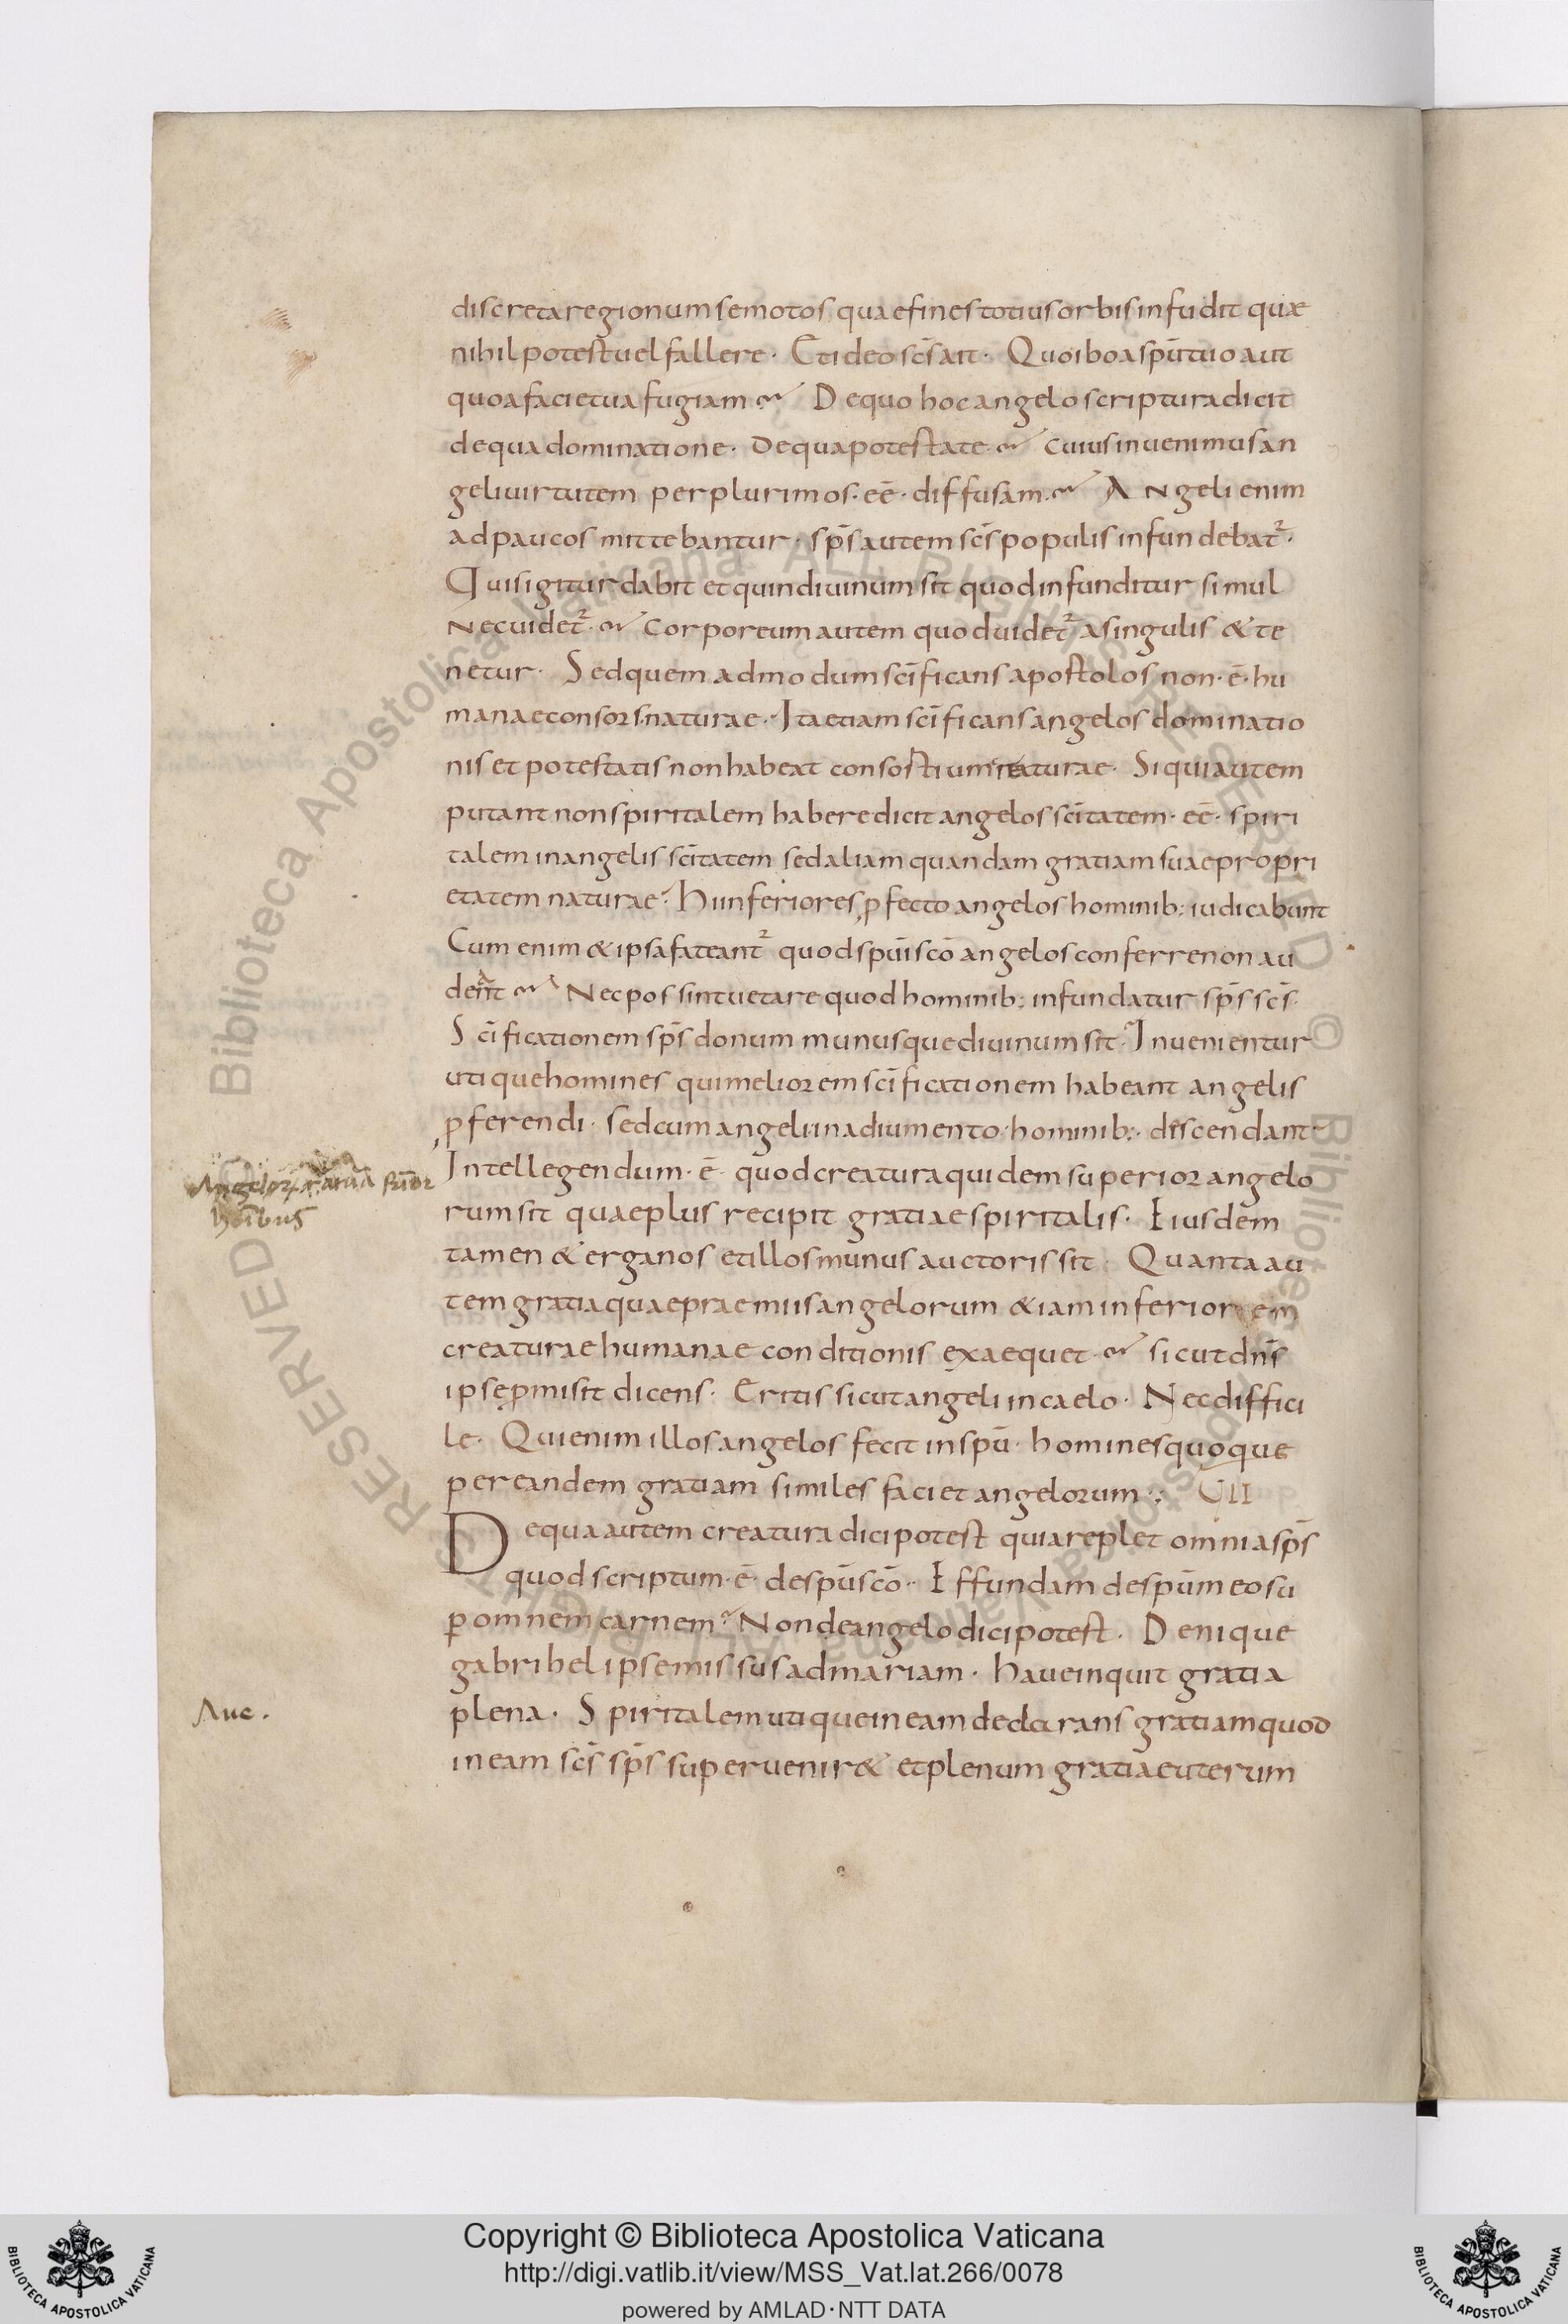 discreta regionum semotosquae fines totius orbis infudit quæ
nihil potest vel fallere. Et ideo scs̄ ait. Quo ibo a spū tuo aut
quo a facie tua fugiam De quo hoc angelo scriptura dicit
de qua dominatione. De qua potestate. cuius invenimus an
geli virtutem per plurimos. eē. diffusam. Angeli enim
ad paucos mittebantur. sps̄ autem scs̄ populis infundebat᷑.
Quis igitur dabitet quin divinum sit quod infunditur simul
Nec videt᷑. Corporeum autem quod videt᷑ a singulis & te
netur. Sed quem admodum scīficans apostolos non. ē. hu
manae consors. naturae. Ita etiam scīficans angelos dominatio
nis et potestatis non habeat consortium naturae. Si qui autem
putant non spiritalem habere dicit angelos scītatem. eē. spiri
talem in angelis scītatem sed aliam quandam gratiam suae propri
etatem naturae. Hi inferiores ꝓfecto angelos hominib; iudicabunt
Cum enim & ipsa fateant᷑ quod spūi scō angelos conferre non au
dent Nec possint vetare quod hominib; infundatur sps̄ scs̄.
Scīficationem sps̄ donum munusque divinum sit. Invenientur
utique homines qui meliorem scīficationem habeant angelis
p̄ferendi. sed cum angeli in adiumento hominib;. discendant
Intellegendum. ē. quod creatura quidem superior angelo
rum sit quae plus recipit gratiae spiritalis. Eiusdem
tamen & erga nos et illos munus auctoris sit. Quanta au
tem gratia quae praemiis angelorum & iam inferiorem
creaturae humanae conditionis exaequet sicut dns̄
ipse ꝓmisit dicens. Eritis sicut angeli in caelo. Nec diffici
le. Qui enim illos angelos fecit in spū. homines quoque
per eandem gratiam similes faciet angelorum:; VII
De qua autem creatura dici potest quia replet omnia sps̄
quod scriptum. ē. de spū scō. Effundam de spū meo su
ꝑ omnem carnem. Non de angelo dici potest. Denique
gabrihel ipse missus ad mariam. have inquit gratia
plena. Spiritalem utique in eam declarans gratiam quod
in eam scs̄ sps̄ supervenir& et plenum gratiae uterum
Angelorꝝ
hoībus
Ave.
Copyright © Biblioteca Apostolica Vaticana
http://digi.vatlib.it/view/MSS_Vat.lat.266/0078
powered by AMLAD·NTT DATA
BIBLIOTECA APOSTOLICA VATICANA
BIBLIOTECA APOSTOLICA VATICANA